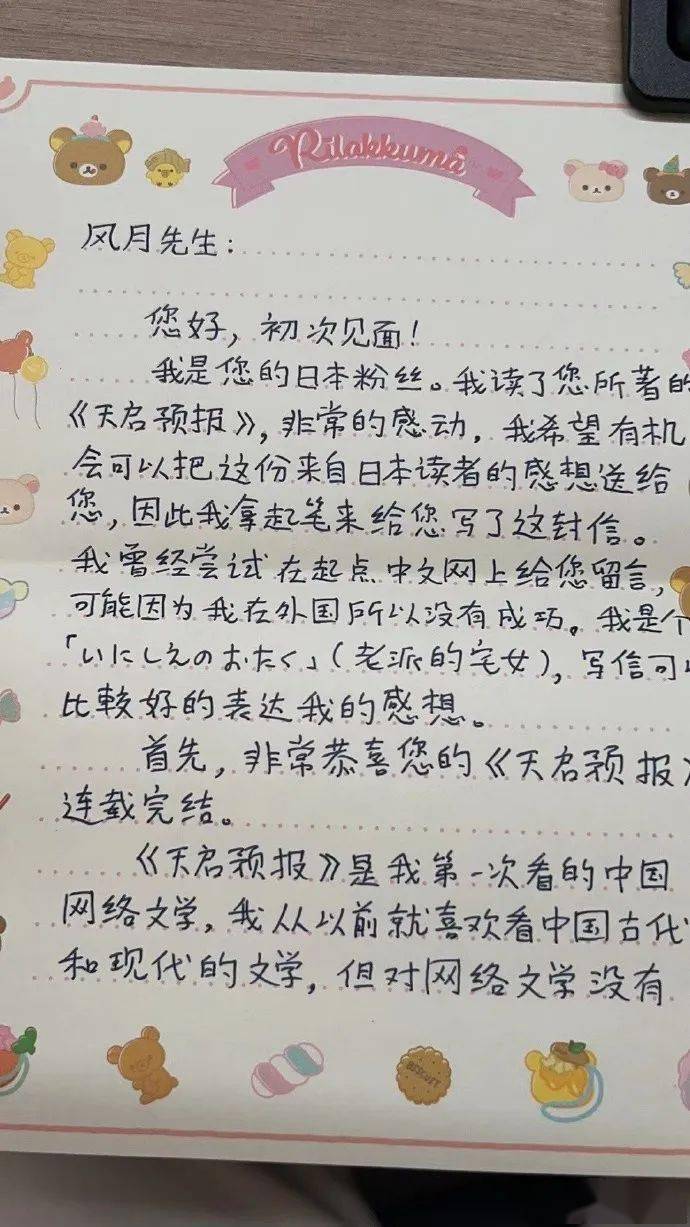 Rilakkuma
风月先生：
您好，初次见面！
我是您的日本粉丝。我读了您所著的
《天启预报》，非常的感动，我希望有机
会可以把这份来自日本读者的感想送给
您，因此我拿起笔来给您写了这封信。
我曾经尝试在起点中文网上给您留言，
可能因为我在外国所以没有成功。我是个
「いにしえのおたく」（老派的宅女），写信可以
比較好的表达我的感想。
首先，非常恭喜您的《天启预报》
连载完结。
《天启预报》是我第一次看的中国
网络文学，我从以前就喜欢看中国古代
和现代的文学，但对网络文学没有
BISCUIT